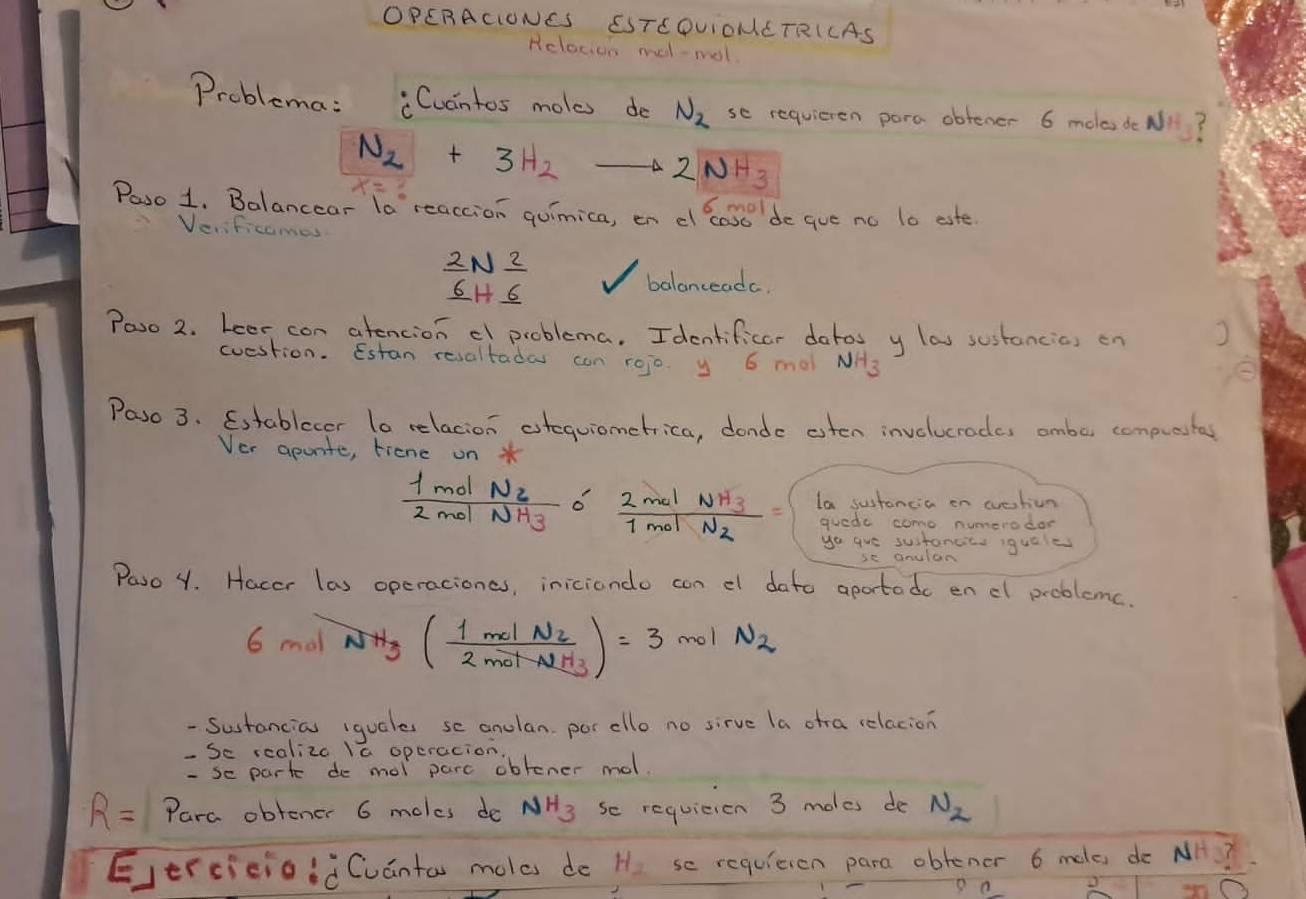 OPERACIONES ESTEQUIOMETRICAS
Relación mol-mol.
Problema: ¿Cuántos moles de N₂ se requieren para obtener 6 moles de NH₃?
N₂ + 3H₂ → 2NH₃
x=?
6 mol
Paso 1. Balancear la reacción química, en el caso de que no lo este.
Verificamos.
2 N 2
6 H 6
✓ balanceada.
Paso 2. Leer con atención el problema. Identificar datos y las sustancias en
cuestion. Estan resaltadas con rojo. y 6 mol NH₃
Paso 3. Establecer la relación estequiometrica, donde esten involucrados ambos compuestos
Ver apunte, tiene un *
1 mol N₂ / 2 mol NH₃ ó 2 mol NH₃ / 1 mol N₂ =
la sustancia en cuestion
queda como numerador
ya que sustancias iguales
se anulan
Paso 4. Hacer las operaciones, iniciando con el dato aportado en el problema.
6 mol NH₃ (1 mol N₂ / 2 mol NH₃) = 3 mol N₂
- Sustancias iguales se anulan. por ello no sirve la otra relación
- Se realiza la operación.
- se parte de mol para obtener mol.
R = Para obtener 6 moles de NH₃ se requieren 3 moles de N₂
Ejercicio: ¿Cuántos moles de H₂ se requieren para obtener 6 moles de NH₃?